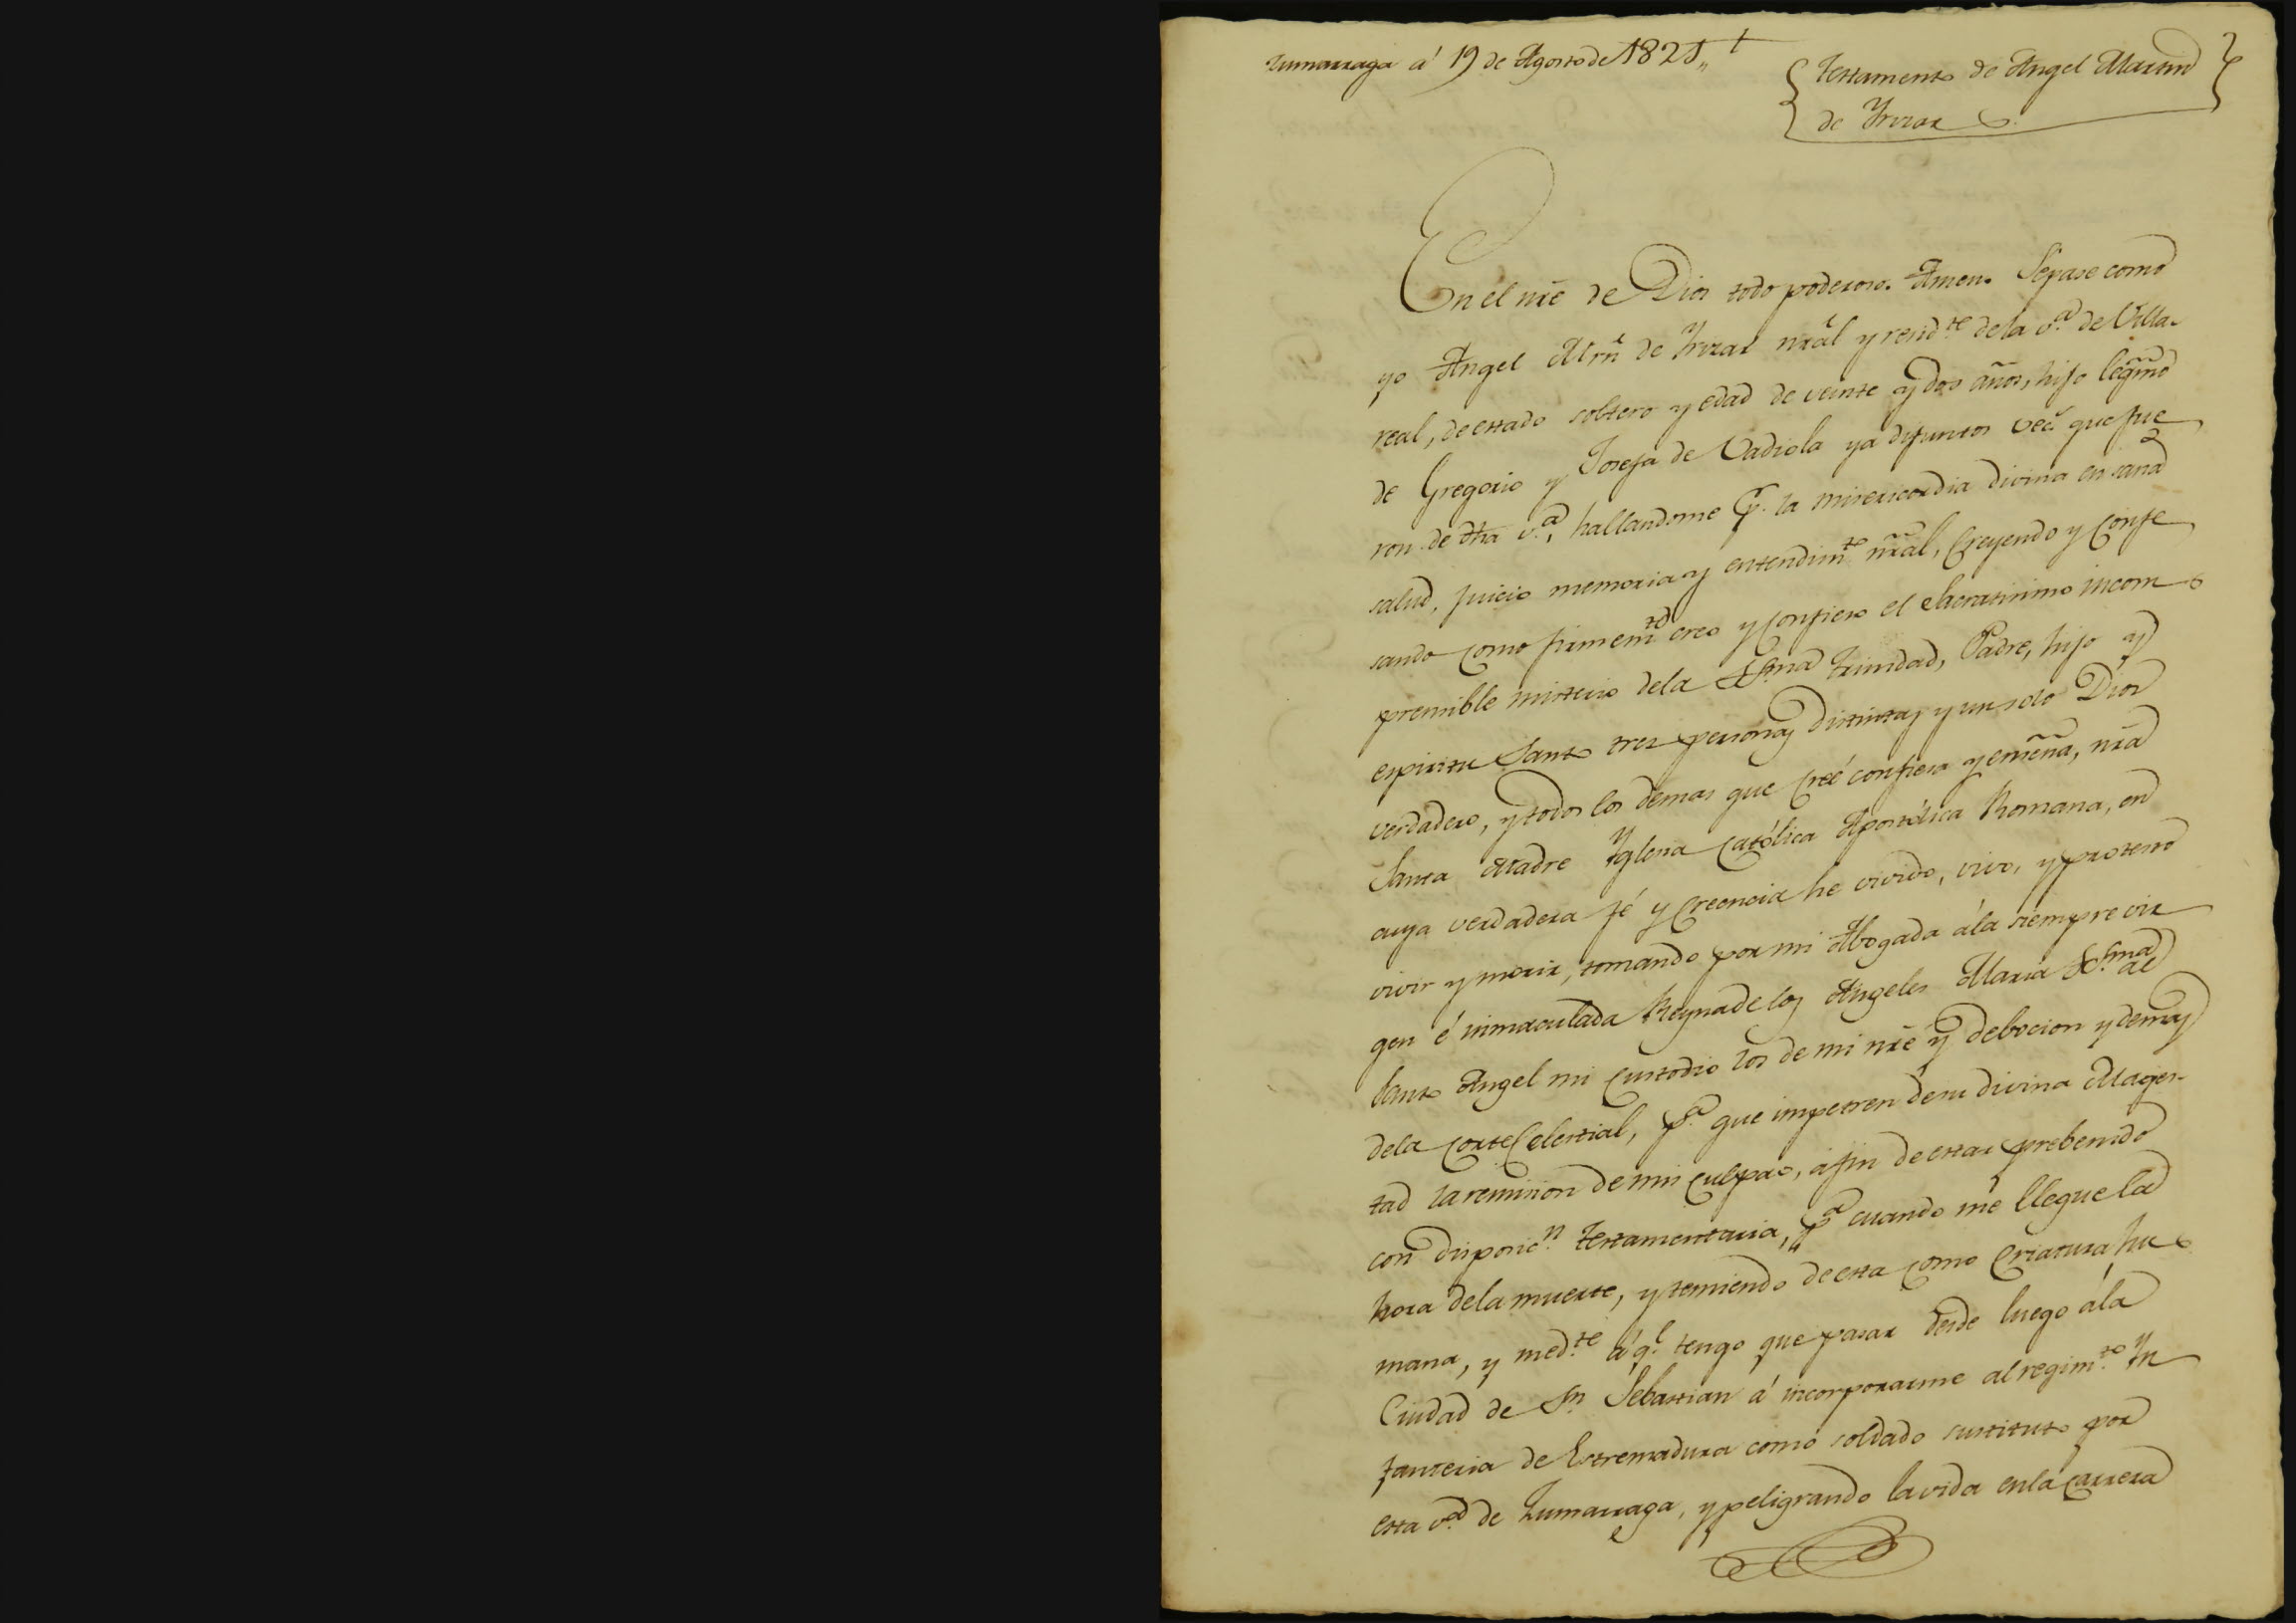 Zumarraga á 19 de Agosto de 1821,,
Testamento de Angel Martin
de Yrizar
En el nrẽ de Dios todo poderoso. Amen. Sepase como
yo Angel Mrñ de Yrizar nrãl y resid.te de la v.a de Villa-
real, de estado soltero y edad de veinte y dos años, hijo legm̃o
de Gregorio y Josefa de Vadiola ya difuntos vec.s que fue
ron de dha v.a, hallandome p.r la misericordia divina en sana
salud, juicio memoria y entendim.to nrãl, Creyendo y Confe
sando como firmem.te creo y confieso el Sacratisimo incom
prensible misterio de la S.sma Trinidad, Padre, hijo y
espiritu Santo tres personas distintas y un solo Dios
verdadero, y todos los demas que creé confiesa y enseña, nrã
Santa Madre Yglesia Católica Apostólica Romana, en
cuya verdadera fé y Creencia he vivido, vivo, y protesto
vivir y morir, tomando por mi Abogada á la siempre vir
gen é inmaculada Reyna de los Angeles Maria S.sma al
Santo Angel mi Custodio los de mi nrẽ y debocion y demas
de la Corte Celestial, p.a que impetren de su divina Mages-
tad la remision de mis culpas, á fin de estar prebenido
con disposic.n testamentaria, p.a cuando me llegue la
hora de la muerte, y temiendo de esta como Criatura hu
mana, y med.te á q.e tengo que pasar desde luego á la
Ciudad de S.n Sebastian á incorporarme al regim.to Yn
fanteria de Estremadura como soldado sustituto por
esta v.a de Zumarraga, y peligrando la vida en la carrera